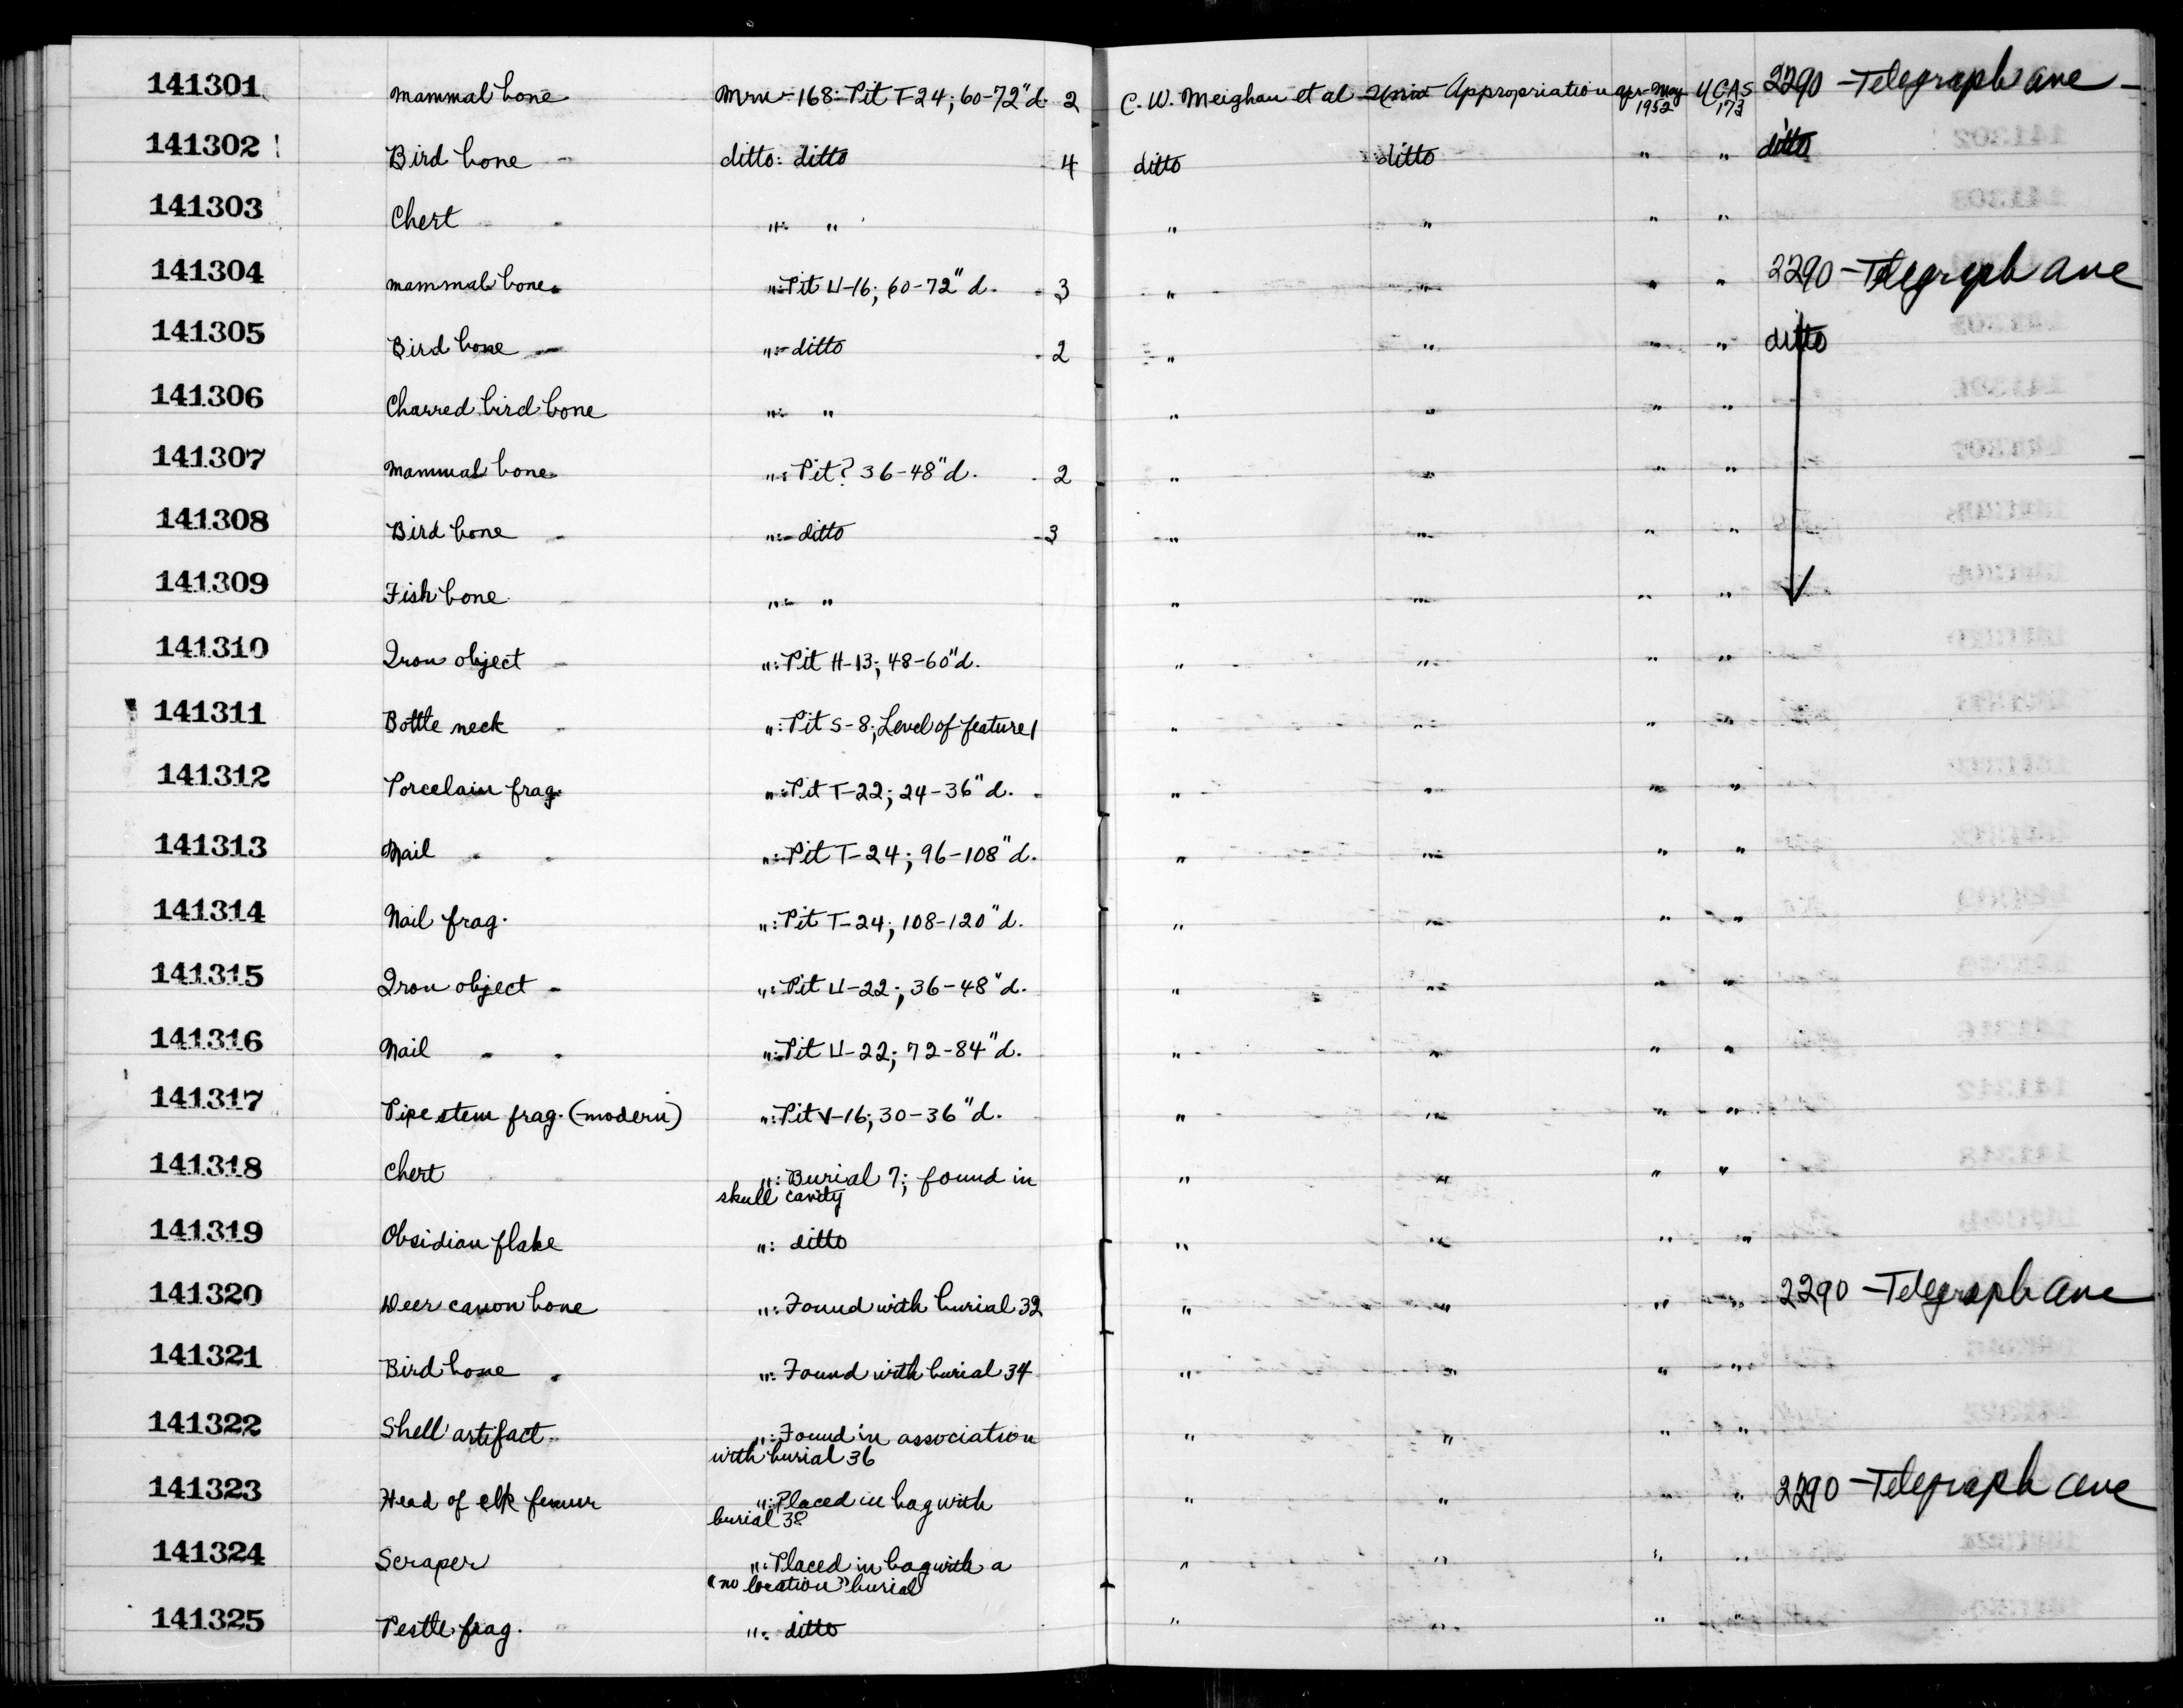 141301 Mammal bone Mrn-168: Pit T-24; 60-72"d. 2 C. W. Meighan et al Univ Appropriation Apr-May 1952 UCAS 173 2290 - Telegraph ave -
141302 Bird bone - ditto: ditto - 4 ditto ditto " " ditto
141303 Chert - - ": " " " " "
141304 Mammal bone ": Pit U-16; 60-72" d. - 3 " " " " 2290 - Telegraph ave
141305 Bird bone - ": ditto - 2 " " " " ditto
141306 Charred bird bone ": " " " " "
141307 Mammal bone ": Pit? 36-48" d. - 2 " " " "
141308 Bird bone - ": ditto - 3 " " " "
141309 Fish bone - ": " " " " "
141310 Iron object - ": Pit H-13; 48-60"d. " " " "
141311 Bottle neck - ": Pit S-8; Level of feature 1 " " " "
141312 Porcelain frag. ": Pit T-22; 24-36" d. - " " " "
141313 Nail - - ": Pit T-24; 96-108" d. " " " "
141314 Nail frag. ": Pit T-24; 108-120" d. " " " "
141315 Iron object - ": Pit U-22; 36-48" d. " " " "
141316 Nail - - ": Pit U-22; 72-84" d. " " " "
141317 Pipe stem frag. (modern) ": Pit V-16; 30-36" d. " " " "
141318 Chert ": Burial 7; found in " " " "
skull cavity
141319 Obsidian flake ": ditto " " " "
141320 Deer canon bone ": Found with burial 32 " " " " 2290 - Telegraph ave
141321 Bird bone - ": Found with burial 34 " " " "
141322 Shell artifact ": Found in association " " " "
with burial 36
141323 Head of elk femur ": Placed in bag with " " " " 2290 - Telegraph ave
burial 38
141324 Scraper ": Placed in bag with a " " " "
"no location" burial
141325 Pestle frag. ": ditto " " " "